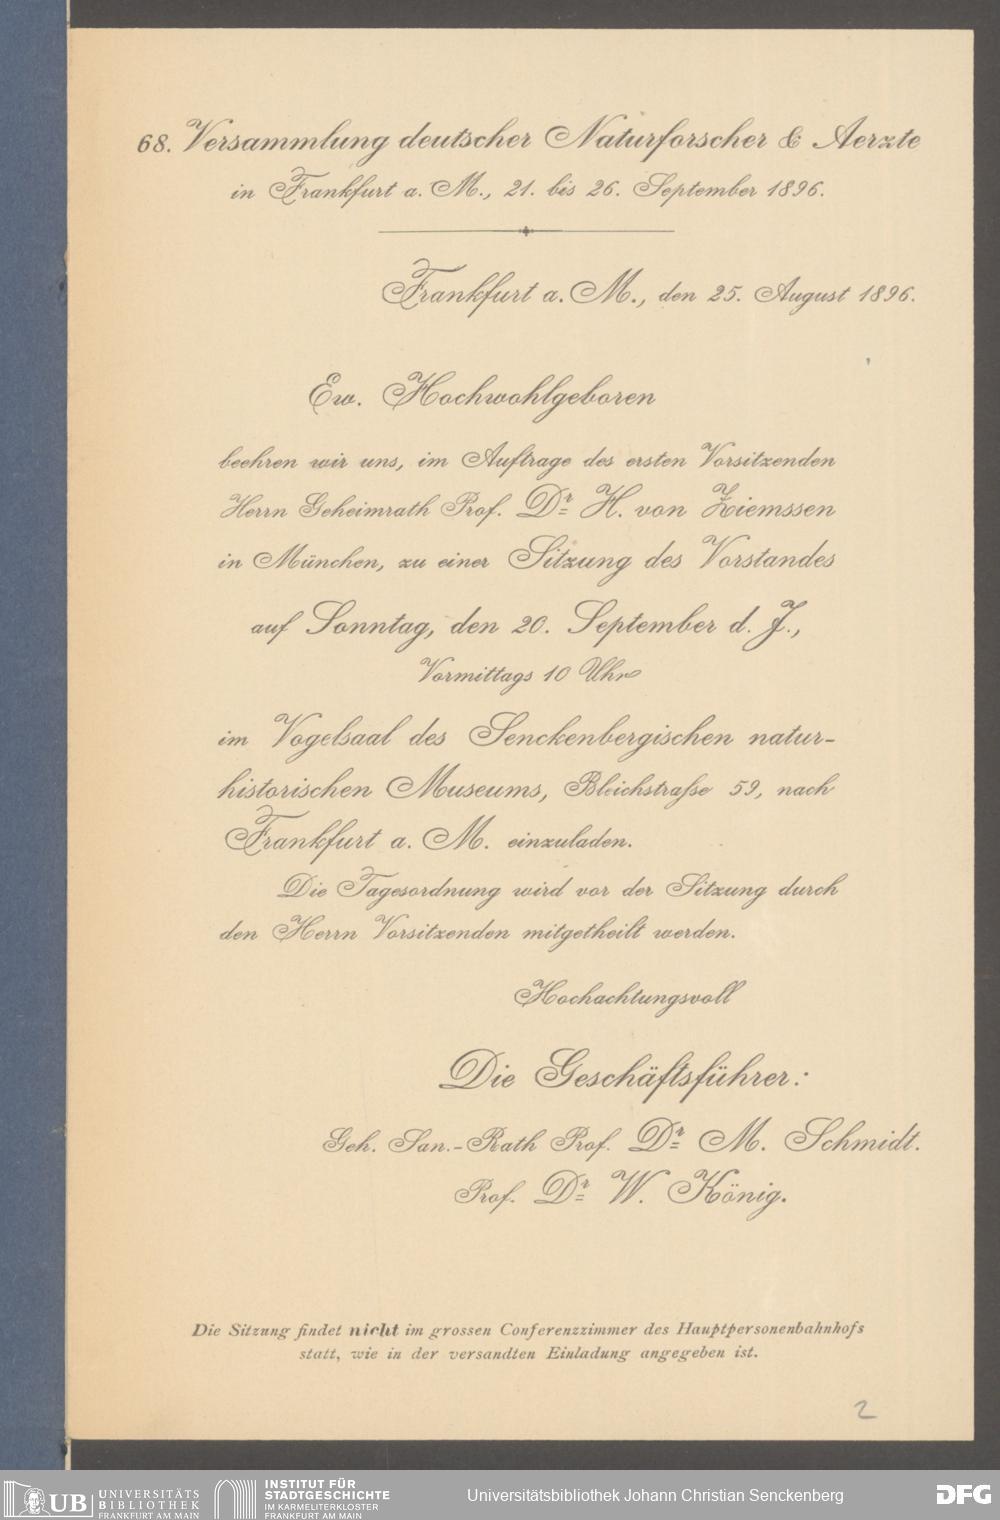 68. Versammlung deutscher Naturforscher & Aerzte
in Frankfurt a. M., 21. bis 26. September 1896.
Frankfurt a. M., den 25. August 1896.
Ew. Hochwohlgeboren
beehren wir uns, im Auftrage des ersten Vorsitzenden
Herrn Geheimrath Prof. Dr. H. von Ziemssen
in München, zu einer Sitzung des Vorstandes
auf Sonntag, den 20. September d. J.,
Vormittags 10 Uhr
im Vogelsaal des Senckenbergischen natur-
historischen Museums, Bleichstraße 59, nach
Frankfurt a. M. einzuladen.
Die Tagesordnung wird vor der Sitzung durch
den Herrn Vorsitzenden mitgetheilt werden.
Hochachtungsvoll
Die Geschäftsführer:
Geh. San.-Rath Prof. Dr. M. Schmidt.
Prof. Dr. W. König.
Die Sitzung findet nicht im grossen Conferenzzimmer des Hauptpersonenbahnhofs
statt, wie in der versandten Einladung angegeben ist.
2
UB UNIVERSITÄTS
BIBLIOTHEK
FRANKFURT AM MAIN
INSTITUT FÜR
STADTGESCHICHTE
IM KARMELITERKLOSTER
FRANKFURT AM MAIN
Universitätsbibliothek Johann Christian Senckenberg
DFG